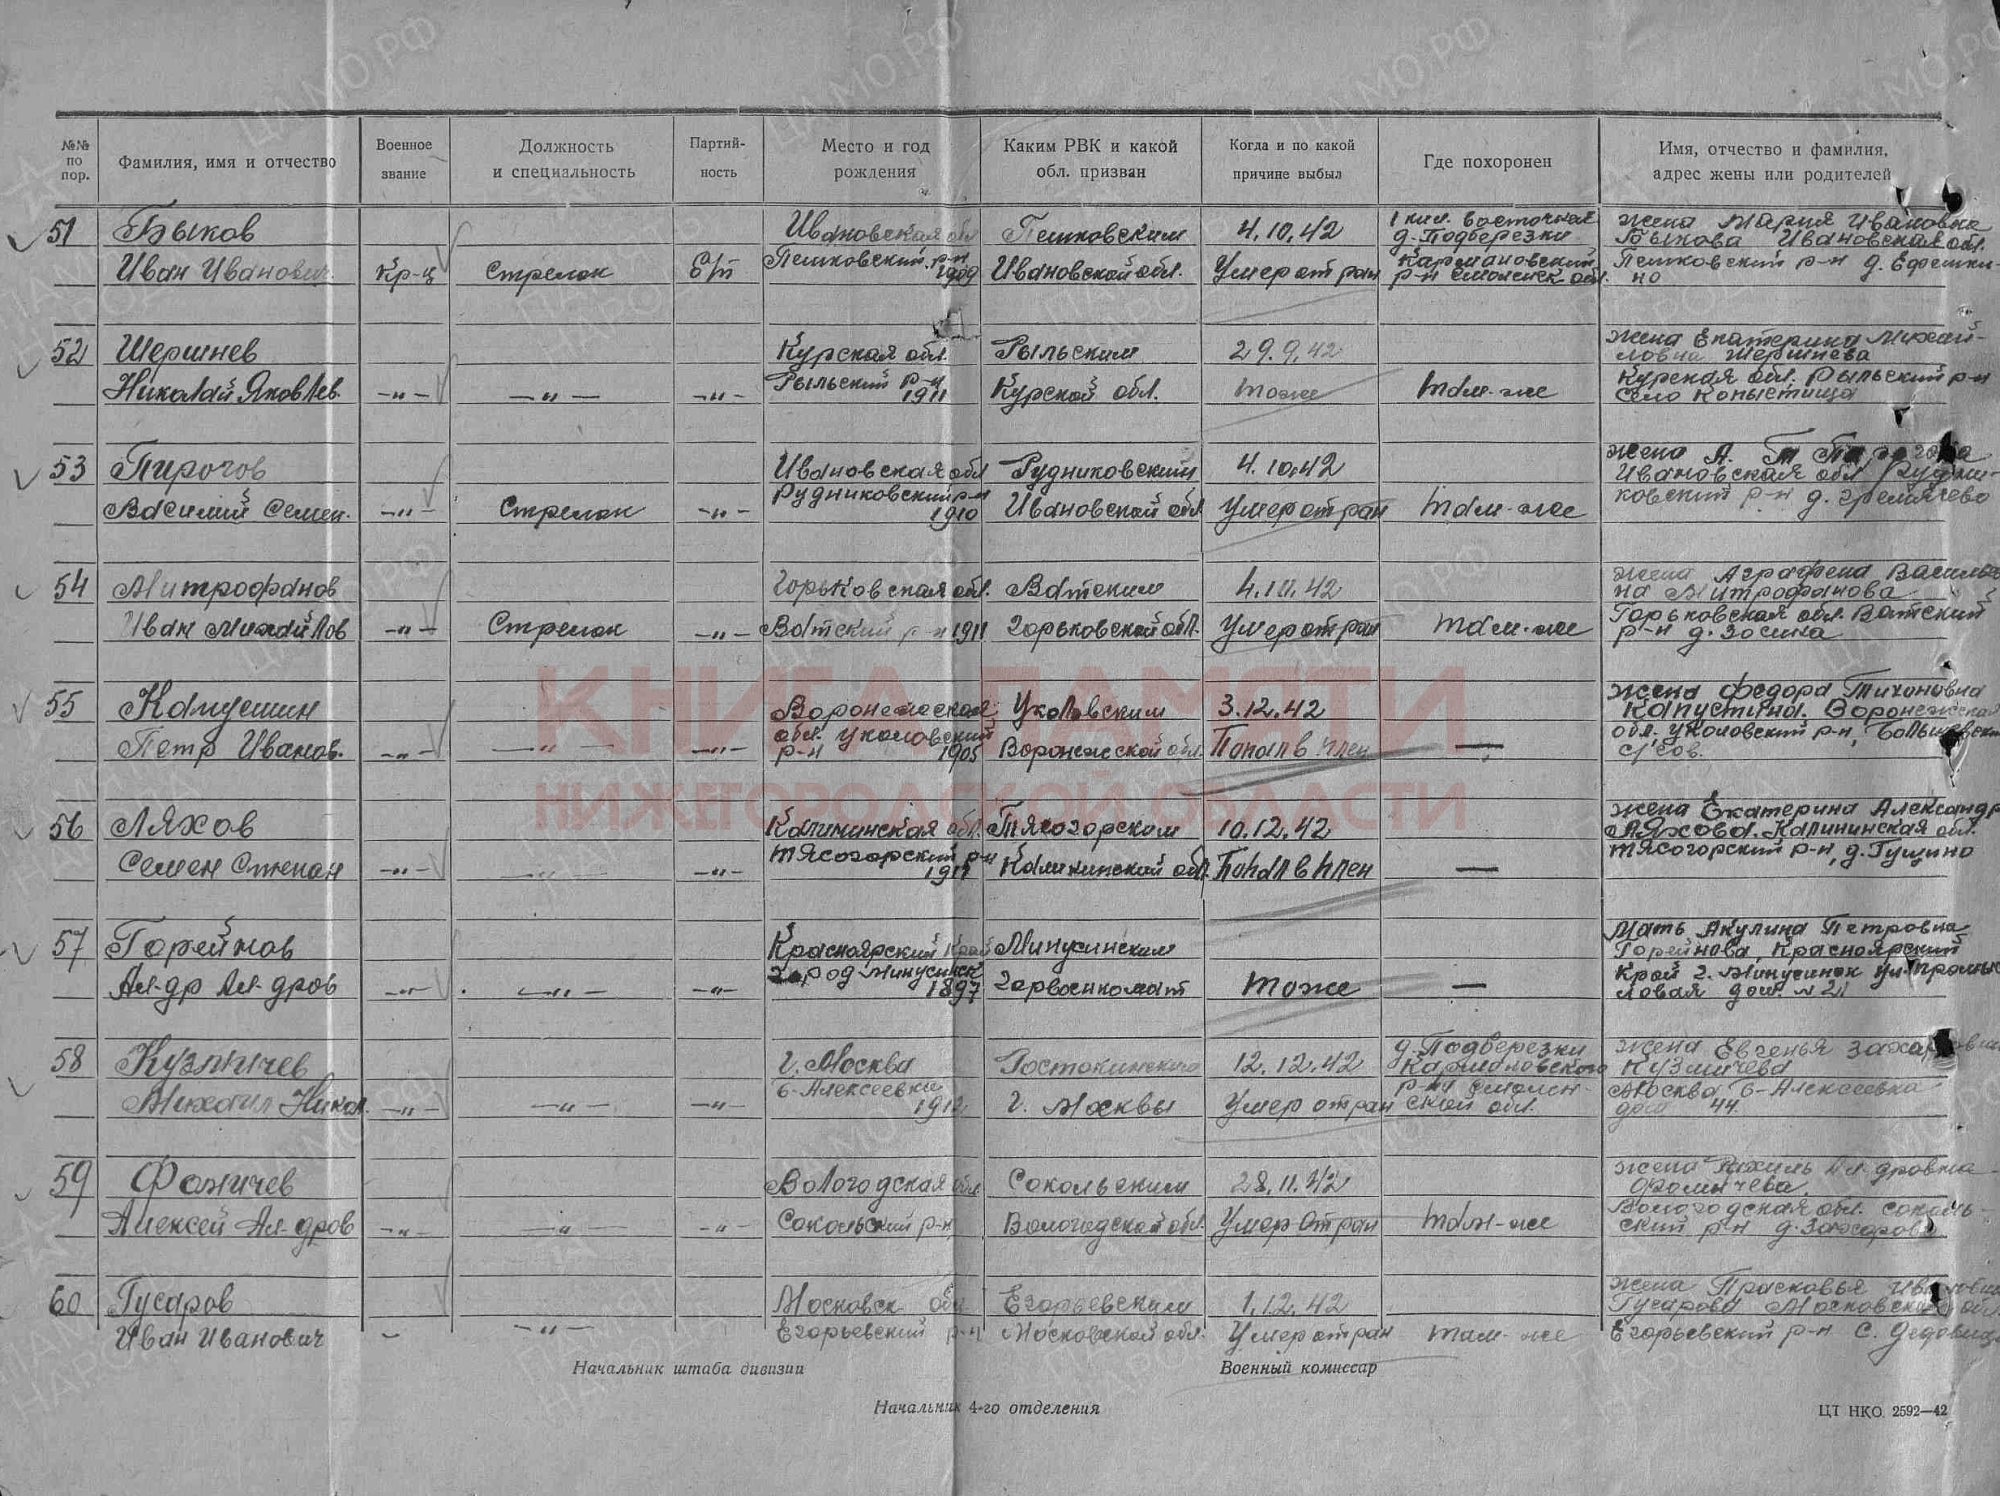 №№ по пор.
Фамилия, имя и отчество
Военное звание
Должность и специальность
Партий-ность
Место и год рождения
Каким РВК и какой обл. призван
Когда и по какой причине выбыл
Где похоронен
Имя, отчество и фамилия, адрес жены или родителей
51 Быков Ивановская обл Пешковским 4.10.42 1 кил. восточная д. Подберезки жена Мария Ивановна Быкова Ивановская обл.
Иван Иванович Кр-ц Стрелок б/п Пешковский р-н 1909 Ивановской обл. Умер от ран Кармановский р-н Смоленск обл. Пешковский р-н д. Ефешки-но
52 Шершнев Курская обл. Рыльским 29.9.42 жена Екатерина Михай-ловна Шершнева
Николай Яковлев. —"— —"— —"— Рыльский р-н 1911 Курской обл. тоже там-же Курская обл. Рыльский р-н село Копыстища
53 Пирогов Ивановская обл Рудниковский 4.10.42 жена А. Т
Василий Семен. —"— Стрелок —"— Рудниковский р-н 1910 Ивановской обл Умер от ран там-же Ивановская обл Рудни-ковский р-н д. Гремячево
54 Митрофанов Горьковская обл. Ватским 4.10.42 жена Аграфена Василье на Митрофанова
Иван Михайлов —"— Стрелок —"— Ватский р-н 1911 Горьковской обл. Умер от ран там-же Горьковская обл. Ватский р-н д. Зосиха
55 Капустин Воронежская Уколовским 3.12.42 жена Федора Тихоновна Капустина. Воронежская
Петр Иванов. —"— —"— —"— обл. Уколовский р-н 1905 Воронежской обл. Попал в плен — обл. Уколовский р-н, с/сов.
56 Ляхов Калининская обл. Тясогорским 10.12.42 жена Екатерина Александр Ляхова. Калининская обл.
Семен Степан —"— —"— —"— Тясогорский р-н Калининской обл. Попал в плен — Тясогорский р-н, д. Гущино
57 Горейнов Красноярский край Минусинским Мать Акулина Петровна Горейнова, Красноярский
Ал-др Ал-дров —"— —"— —"— город Минусинск 1897 Горвоенкомат тоже — край г. Минусинск ул. Промыс ловая дом. № 21
58 Кузмичев г. Москва Ростокинского 12.12.42 д. Подберезки Кармановского жена Евгенья Захаровна Кузмичева
Михаил Никол. —"— —"— —"— 6-Алексеевка 1912 г. Москвы Умер от ран р-на Смолен-ской обл. Москва 6-Алексеевка дом 44.
59 Фомичев Вологодская обл Сокольским 28.11.42 жена Ал-дровна Фомичева.
Алексей Ал-дров —"— —"— —"— Сокольский р-н Вологодской обл. Умер от ран там-же Вологодская обл. Соколь-ский р-н д. Захарово
60 Гусаров Московск обл Егорьевским 1.12.42 жена Прасковья Ивановна Гусарова Московская обл.
Иван Иванович —"— Егорьевский р-н Московской обл. Умер от ран там-же Егорьевский р-н с.
Начальник штаба дивизии
Военный комиссар
Начальник 4-го отделения
ЦТ НКО 2592—42
КНИГА ПАМЯТИ
НИЖЕГОРОДСКОЙ ОБЛАСТИ